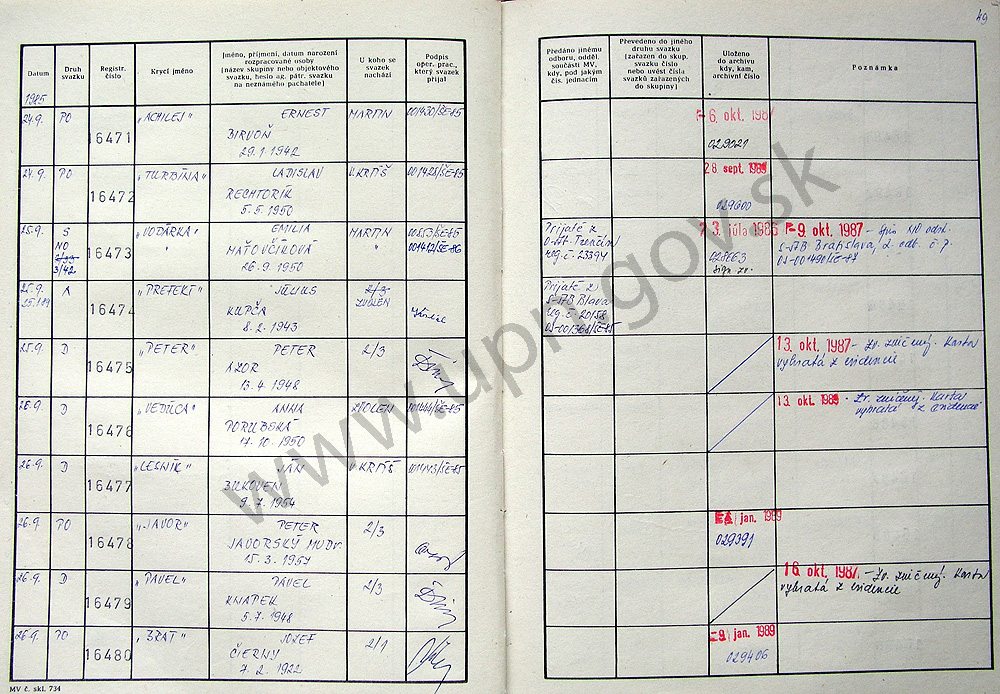 49
Datum
Druh svazku
Registr. číslo
Krycí jméno
Jméno, příjmení, datum narození rozpracované osoby (název skupiny nebo objektového svazku, heslo ag. pátr. svazku na neznámého pachatele)
U koho se svazek nachází
Podpis oper. prac., který svazek přijal
Předáno jinému odboru, odděl. součásti MV, kdy, pod jakým čís. jednacím
Převedeno do jiného druhu svazku (zařazen do skup. svazku číslo nebo uvést čísla svazků zařazených do skupiny)
Uloženo do archivu kdy, kam, archivní číslo
Poznámka
1985
24.9. PO 16471 „ACHILEJ" ERNEST MARTIN 001430/ŠE-85 6. okt. 1987
BIRVOŇ
29.1 1942 029021
24.9. PO 16472 „TURBÍNA" LADISLAV V. KRTÍŠ 001428/ŠE-85 28. sept. 1989
RECHTORÍK
5.5. 1950 029600
25.9. S 16473 „VODÁRKA" EMÍLIA MARTIN 00553/ŠE-85 Prijaté z 3. júla 1986 9. okt. 1987 – Spis
NO " MAŤOVČÍKOVÁ " 001412/ŠE-86 Trenčín S-ŠTB Bratislava, 2. odt. č. 7.
3/42 26.9. 1950 reg. č. 23394
25.9. A 16474 „PREFEKT" JÚLIUS 2/3 Prijaté z
KUPČA ZVOLEN S-ŠTB Blava
8.2. 1943 reg. č. 20158
25.9. D 16475 „PETER" PETER 2/3 13. okt. 1987 – Zv. zničený. Karta
AZOR vybratá z evidencie
13.4. 1948
26.9. D 16476 ANNA ZVOLEN 13. okt. 1989 - Zv. zničený. Karta
PORUBSKÁ vybratá z evidencie
17.10. 1950
26.9. D 16477 „LESNÍK" JÁN V. KRTÍŠ
9.7. 1954
26.9. PO 16478 „JAVOR" PETER 2/3 jan. 1989
JAVORSKÝ MUDr. 029391
15.3. 1957
26.9. D 16479 „PAVEL" PAVEL 2/3 16. okt. 1987. – Zv. zničený. Karta
KNAPEK vybratá z evidencie
5.7. 1948
26.9. PO 16480 „BRAT" JOZEF 2/1 9. jan. 1989
ČIERNY 029406
7.2. 1922
MV č. skl. 734
www.upn.gov.sk